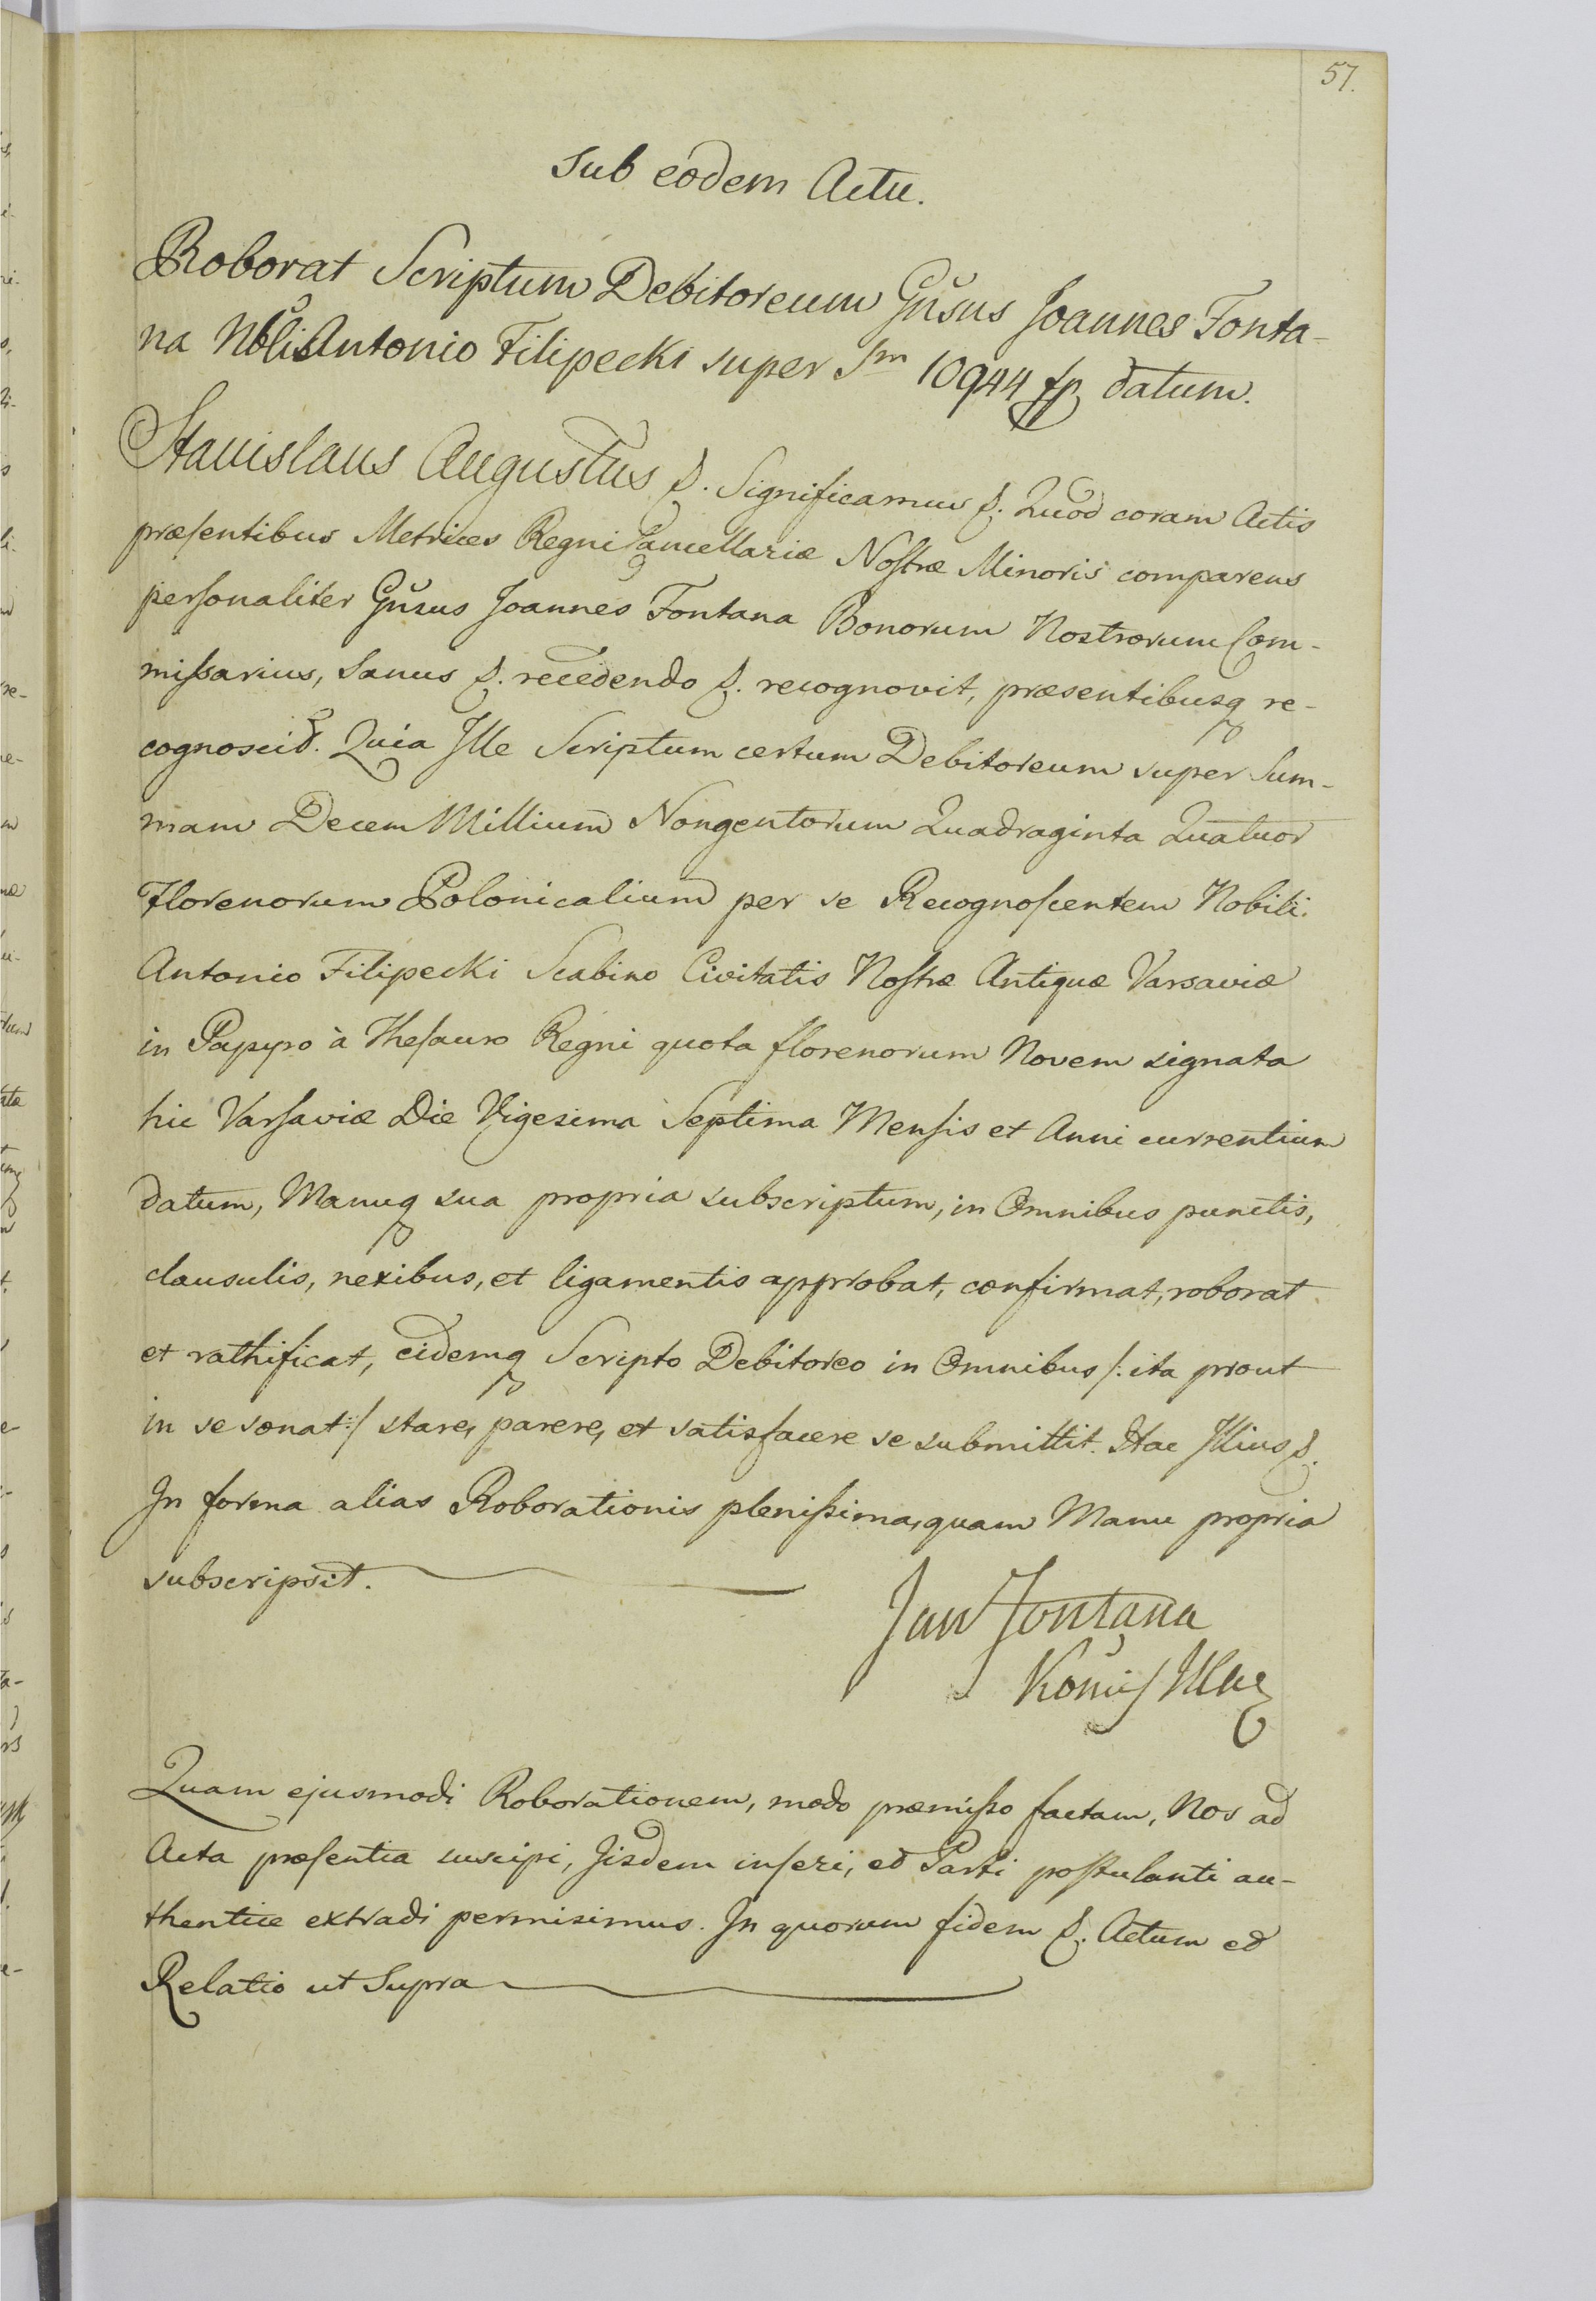 57.
Sub eodem Actu.
Roborat Scriptum Debitoreum Gnsus Joannes Fonta-
na Nbli Antonio Filipecki super Sm 10944 fp datum.
Stanislaus Augustus &. Significamus &. Quod coram Actis
præsentibus Metrices Regni Cancellariæ Nostræ Minoris comparens
personaliter Gnsus Joannes Fontana Bonorum Nostrorum Com-
missarius, Sanus &. recedendo &. recognovit, præsentibusq re-
cognoscit. Quia Ille Scriptum certum Debitoreum super Sum-
mam Decem Millium Nongentorum Quadraginta Quatuor
Florenorum Polonicalium per se Recognoscentem Nobili
Antonio Filipecki Scabino Civitatis Nostræ Antiquæ Varsaviæ
in Papyro à Thesauro Regni quota florenorum Novem signata
hic Varsaviæ Die Vigesima Septima Mensis et Anni currentium
datum, Manuq sua propria subscriptum, in Omnibus punctis,
clausulis, nexibus, et ligamentis approbat, confirmat, roborat
et rathificat, eidemq Scripto Debitoreo in Omnibus /: ita prout
in se sonat :/ stare, parere, et satisfacere se submittit. Hac Illius &.
In forma alias Roborationis plenissima, quam Manu propria
subscripsit.
Jan Fontana
Quam ejusmodi Roborationem, modo præmisso factam, Nos ad
Acta præsentia suscipi, Jisdem inseri, et Parti postulanti au-
thentice extradi permisimus. In quorum fidem &. Actum et
Relatio ut Supra